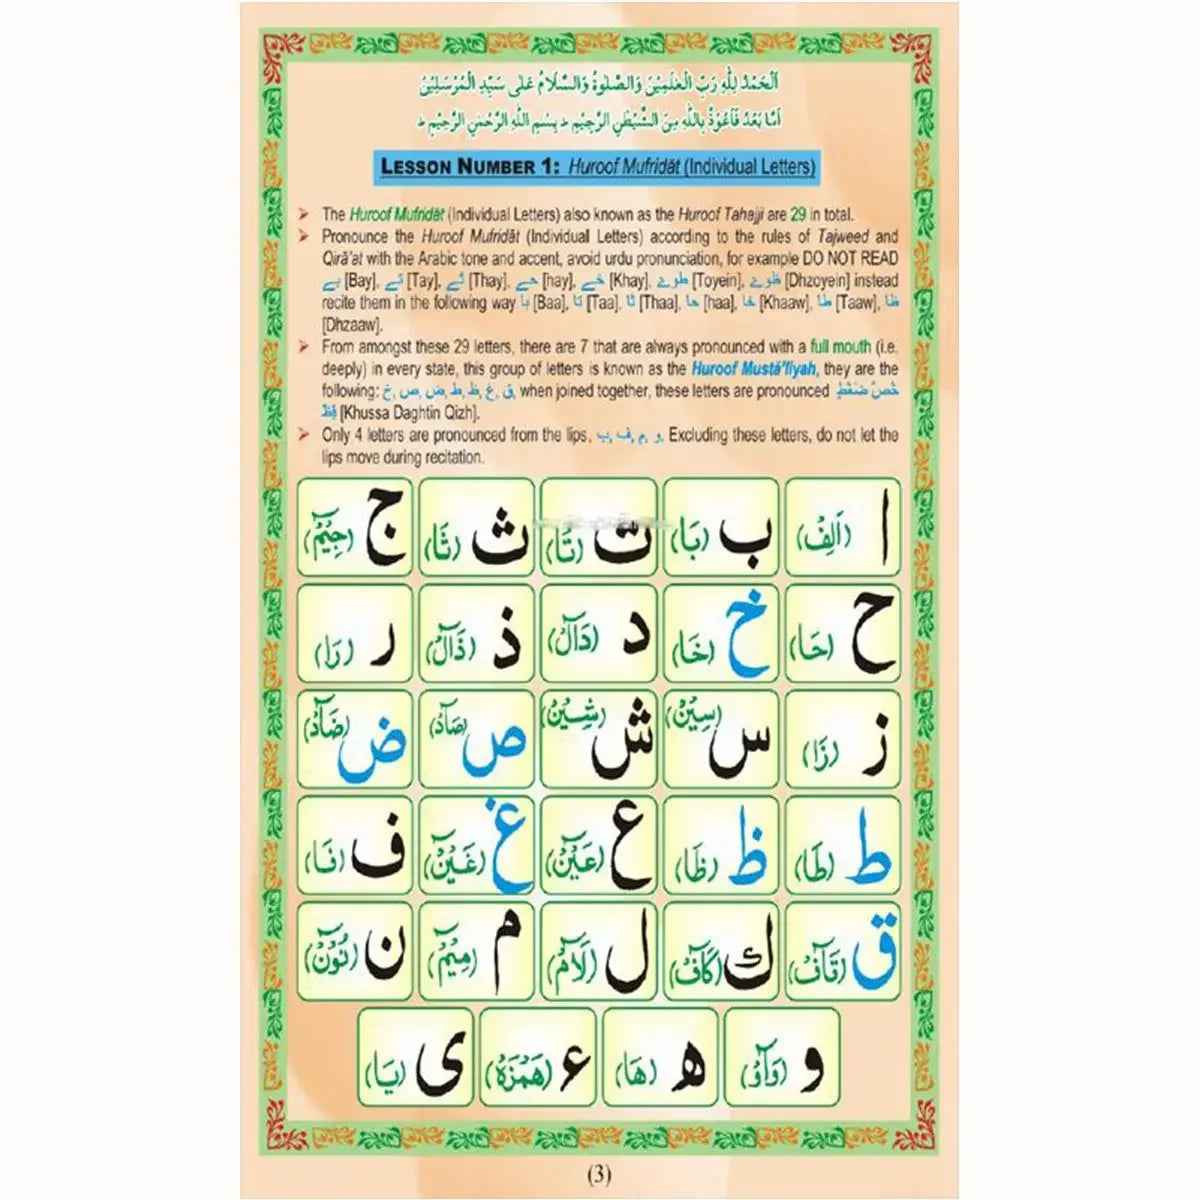 اَلْحَمْدُ لِلّٰهِ رَبِّ الْعٰلَمِيْنَ وَالصَّلٰوةُ وَالسَّلَامُ عَلٰى سَيِّدِ الْمُرْسَلِيْنَ
اَمَّا بَعْدُ فَاَعُوْذُ بِاللّٰهِ مِنَ الشَّيْطٰنِ الرَّجِيْمِ ؕ بِسْمِ اللّٰهِ الرَّحْمٰنِ الرَّحِيْمِ ؕ
LESSON NUMBER 1: Huroof Mufridāt (Individual Letters)
➤ The Huroof Mufridāt (Individual Letters) also known as the Huroof Tahajji are 29 in total.
➤ Pronounce the Huroof Mufridāt (Individual Letters) according to the rules of Tajweed and
Qirā'at with the Arabic tone and accent, avoid urdu pronunciation, for example DO NOT READ
بے [Bay], تے [Tay], ثے [Thay], حے [hay], خے [Khay], طوے [Toyein], ظوے [Dhzoyein] instead
recite them in the following way بَا [Baa], تَا [Taa], ثَا [Thaa], حَا [haa], خَا [Khaaw], طَا [Taaw], ظَا
[Dhzaaw].
➤ From amongst these 29 letters, there are 7 that are always pronounced with a full mouth (i.e.
deeply) in every state, this group of letters is known as the Huroof Mustá'liyah, they are the
following: خ, ص, ض, ط, ظ, غ, ق, when joined together, these letters are pronounced خُصَّ ضَغْطٍ
قِظْ [Khussa Daghtin Qizh].
➤ Only 4 letters are pronounced from the lips, ب, ف, م, و. Excluding these letters, do not let the
lips move during recitation.
ا (اَلِفْ) ب (بَا) ت (تَا) ث (ثَا) ج (جِيْمْ)
ح (حَا) خ (خَا) د (دَالْ) ذ (ذَالْ) ر (رَا)
ز (زَا) س (سِيْنْ) ش (شِيْنْ) ص (صَادْ) ض (ضَادْ)
ط (طَا) ظ (ظَا) ع (عَيْنْ) غ (غَيْنْ) ف (فَا)
ق (قَافْ) ك (كَافْ) ل (لَامْ) م (مِيْمْ) ن (نُوْنْ)
و (وَاوْ) ه (هَا) ء (هَمْزَهْ) ى (يَا)
(3)